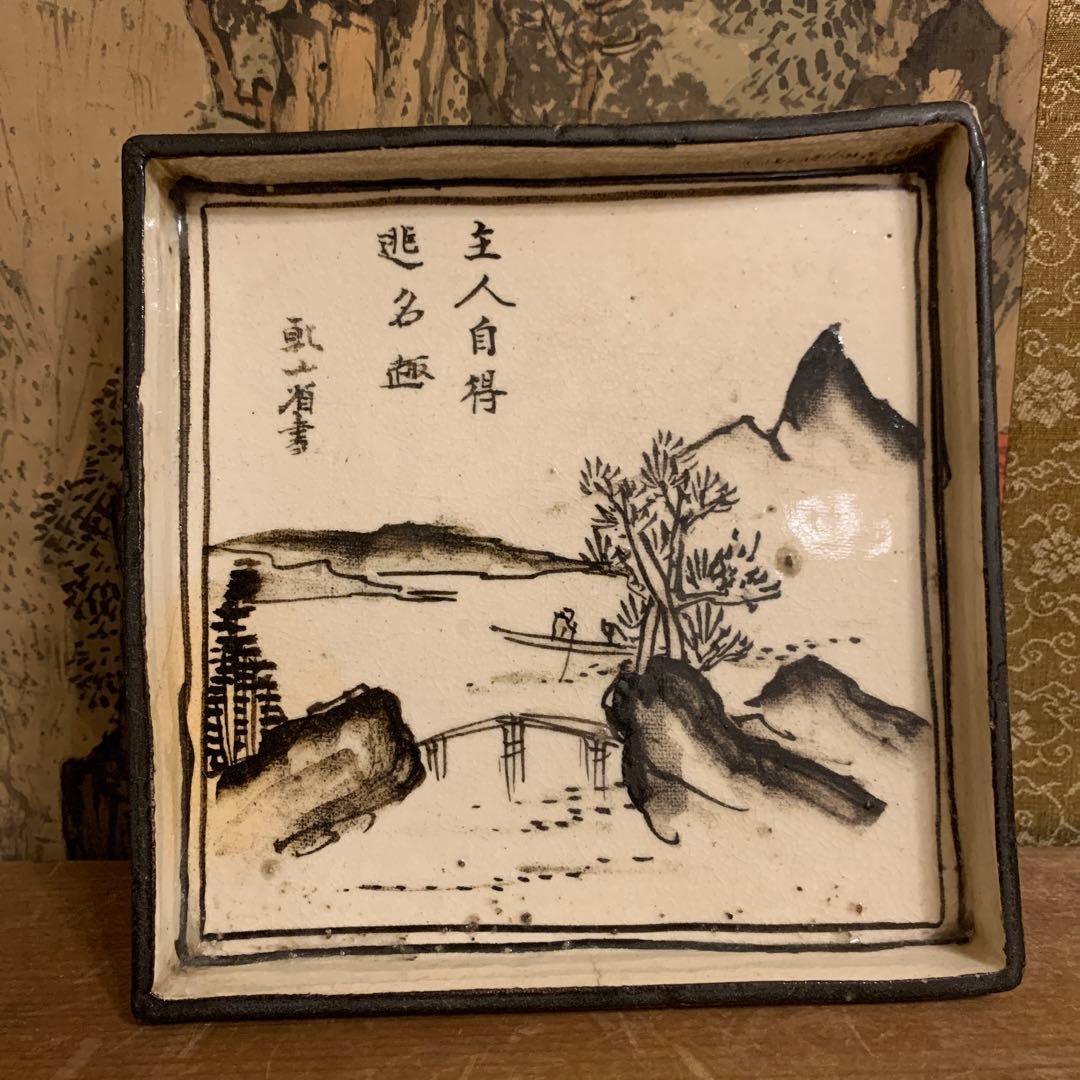 主人自得
逃名趣
乾山省書